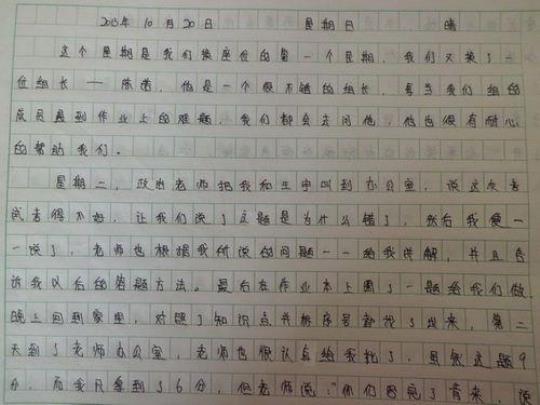 2013年10月20日 星期日 晴
这个星期是我们换座位的第一个星期，我们又换了一
位组长——陈诺，他是一个很不错的组长，每当我们组的
成员遇到作业上的难题，我们都会去问他，他也很有耐心
的帮助我们。
星期二，政治老师把我和王宇叫到办公室，说这次考
试考得不好，让我们说了这题是为什么错了，然后我便一
一说了，老师也根据我所说的问题一一给我讲解，并且告
诉我以后的答题方法。最后在作业本上圈了一题给我们做，
晚上回到家里，对照了知识点并标序号都找了出来，第二
天到了老师办公室，老师也很认真给我批了，虽然这题9
分，而我只拿到了6分，但老师说：“你们要完了背来，说